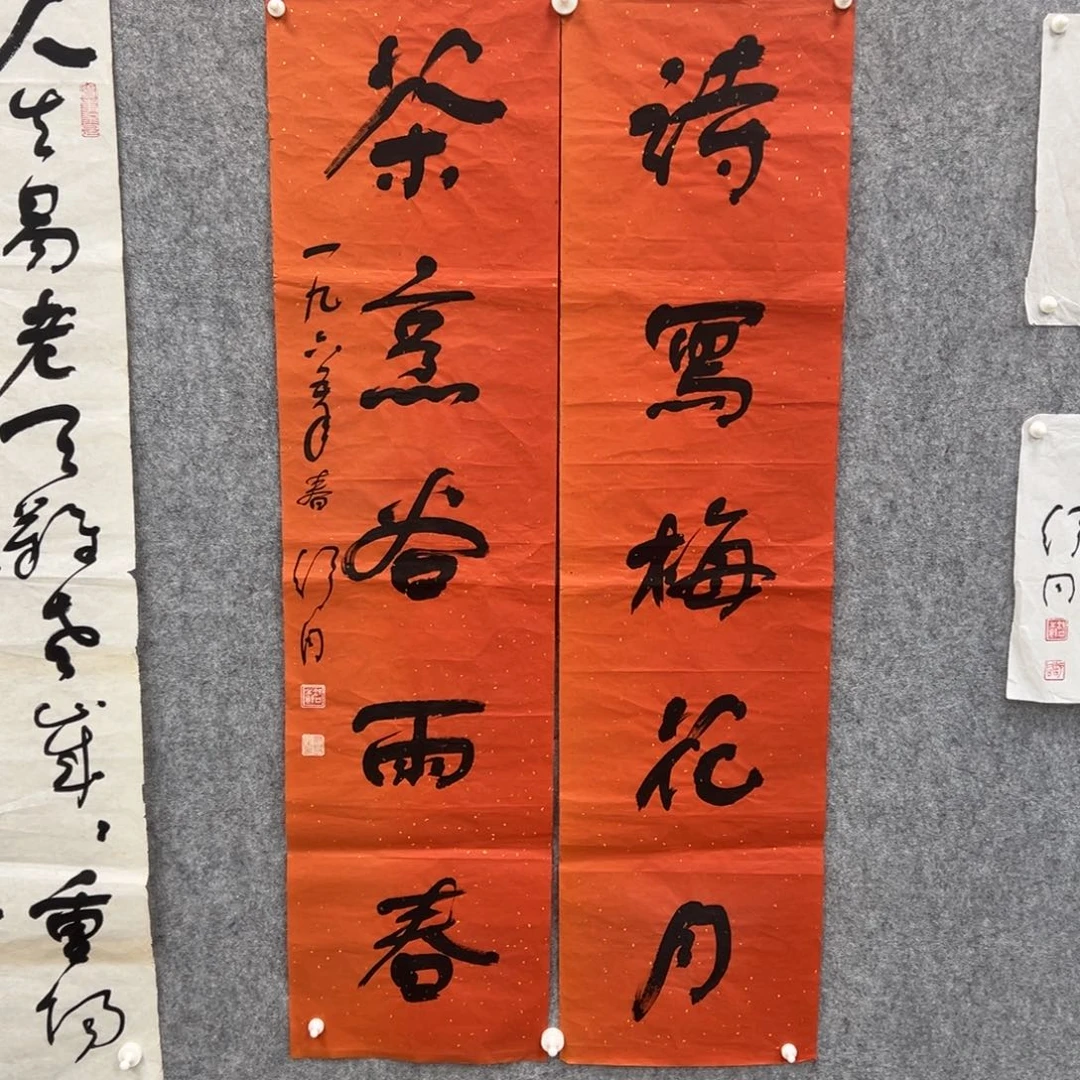 詩寫梅花月
茶烹谷雨春
一九六五年春
舒同
人生易老天難老
歲歲重陽
舒同